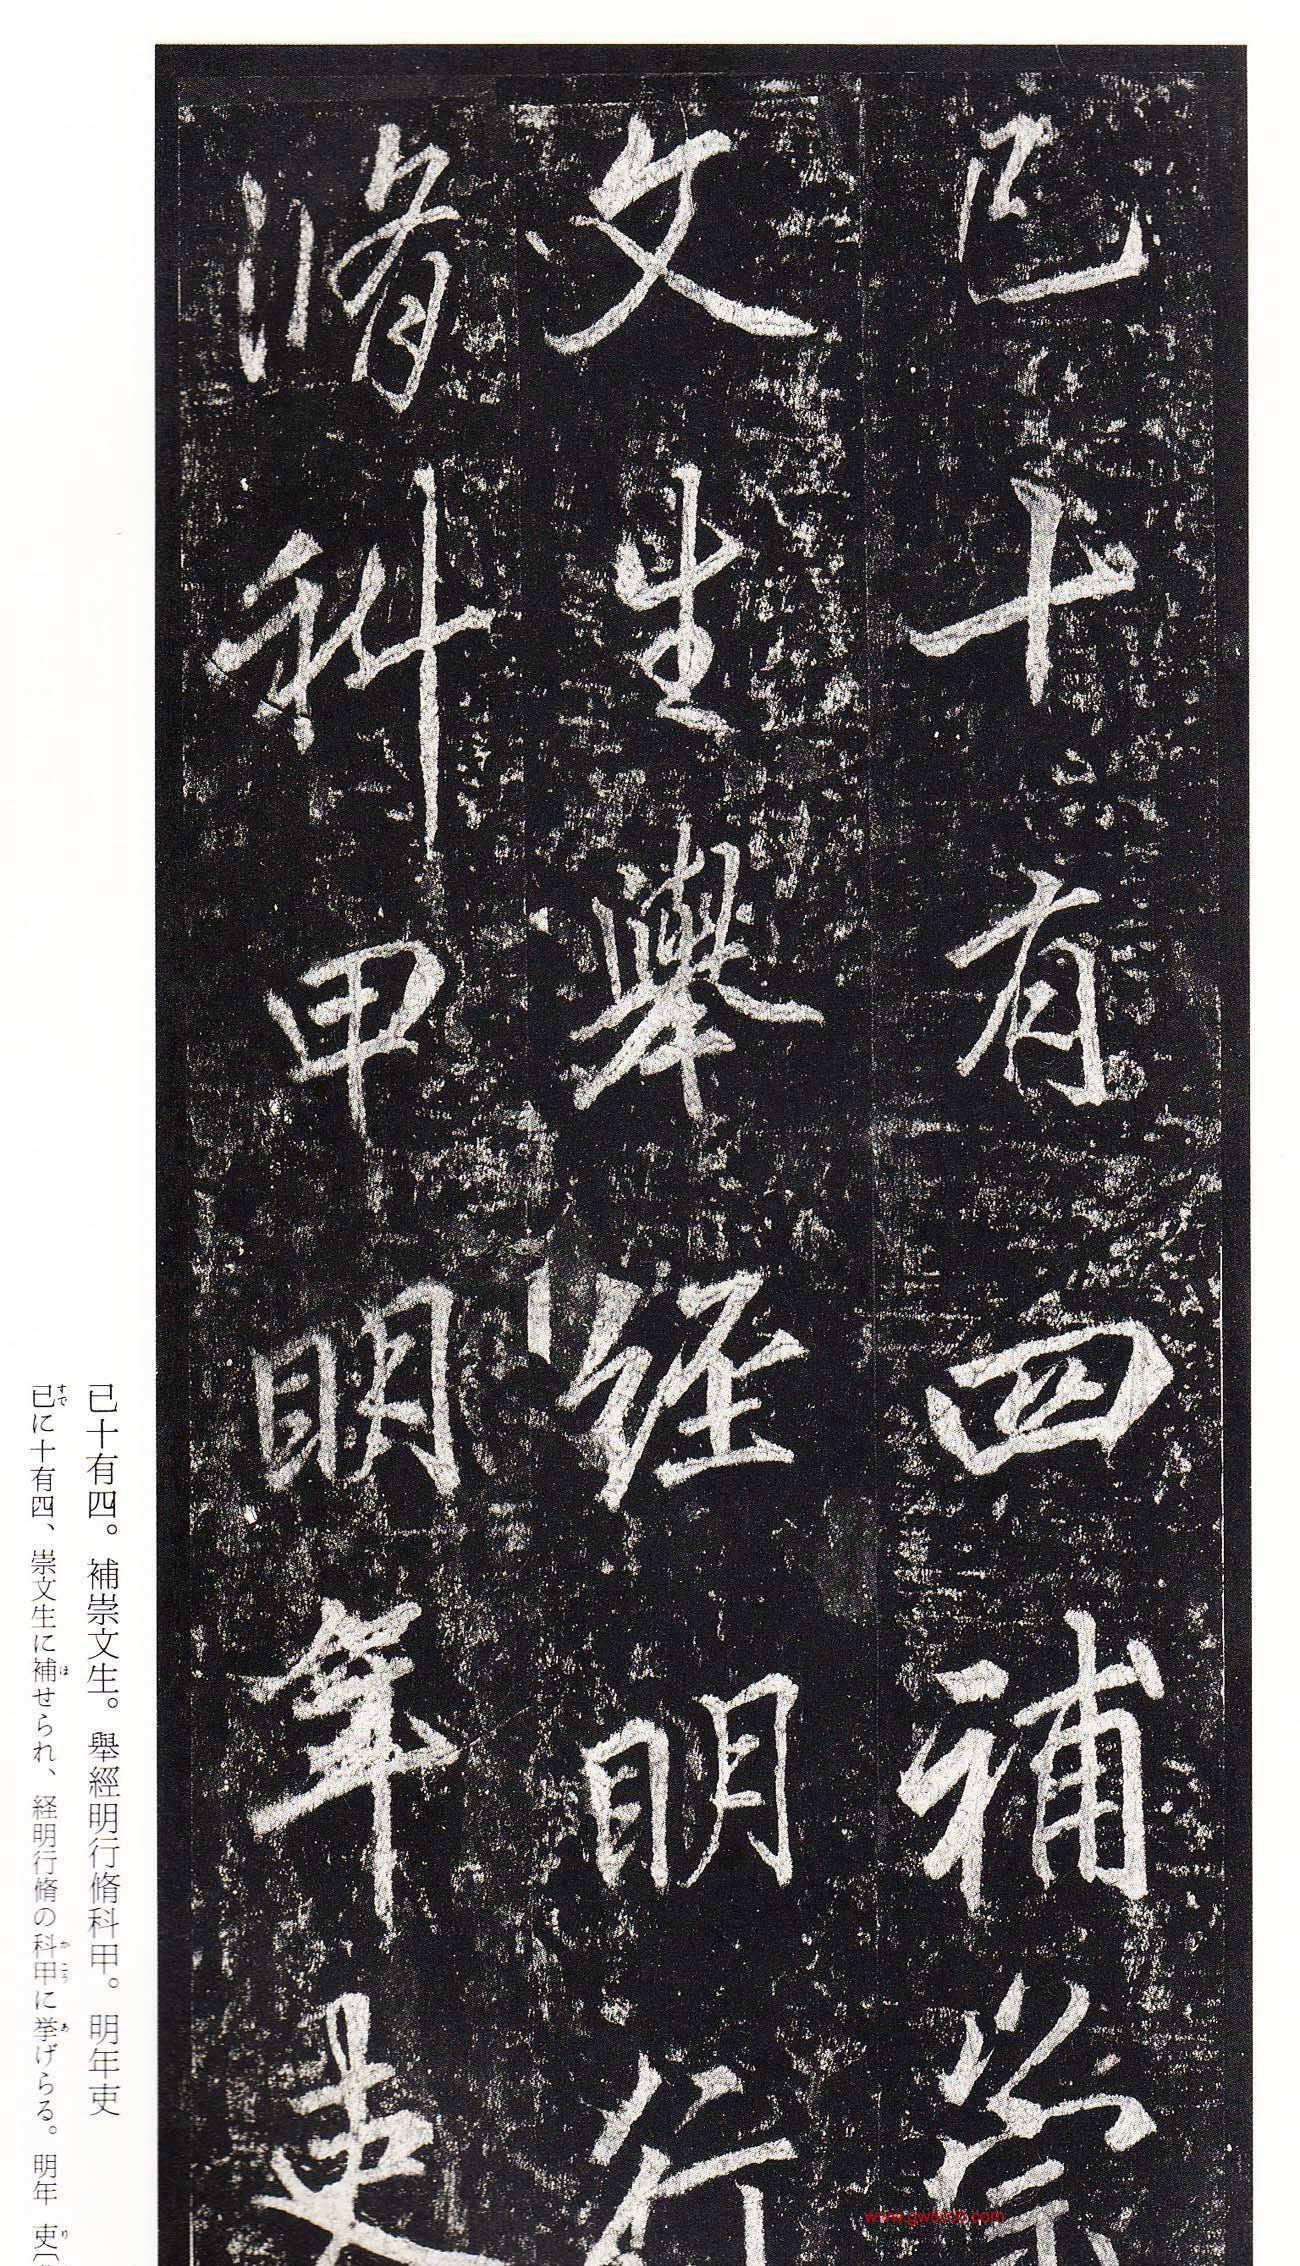 已十有四補崇
文生舉經明行
脩科甲明年吏
已十有四。補崇文生。舉經明行脩科甲。明年吏
已に十有四、崇文生に補せられ、経明行脩の科甲に挙げらる。明年 吏〔
すで
ほ
かこう
あ
り
www.gw5000.com